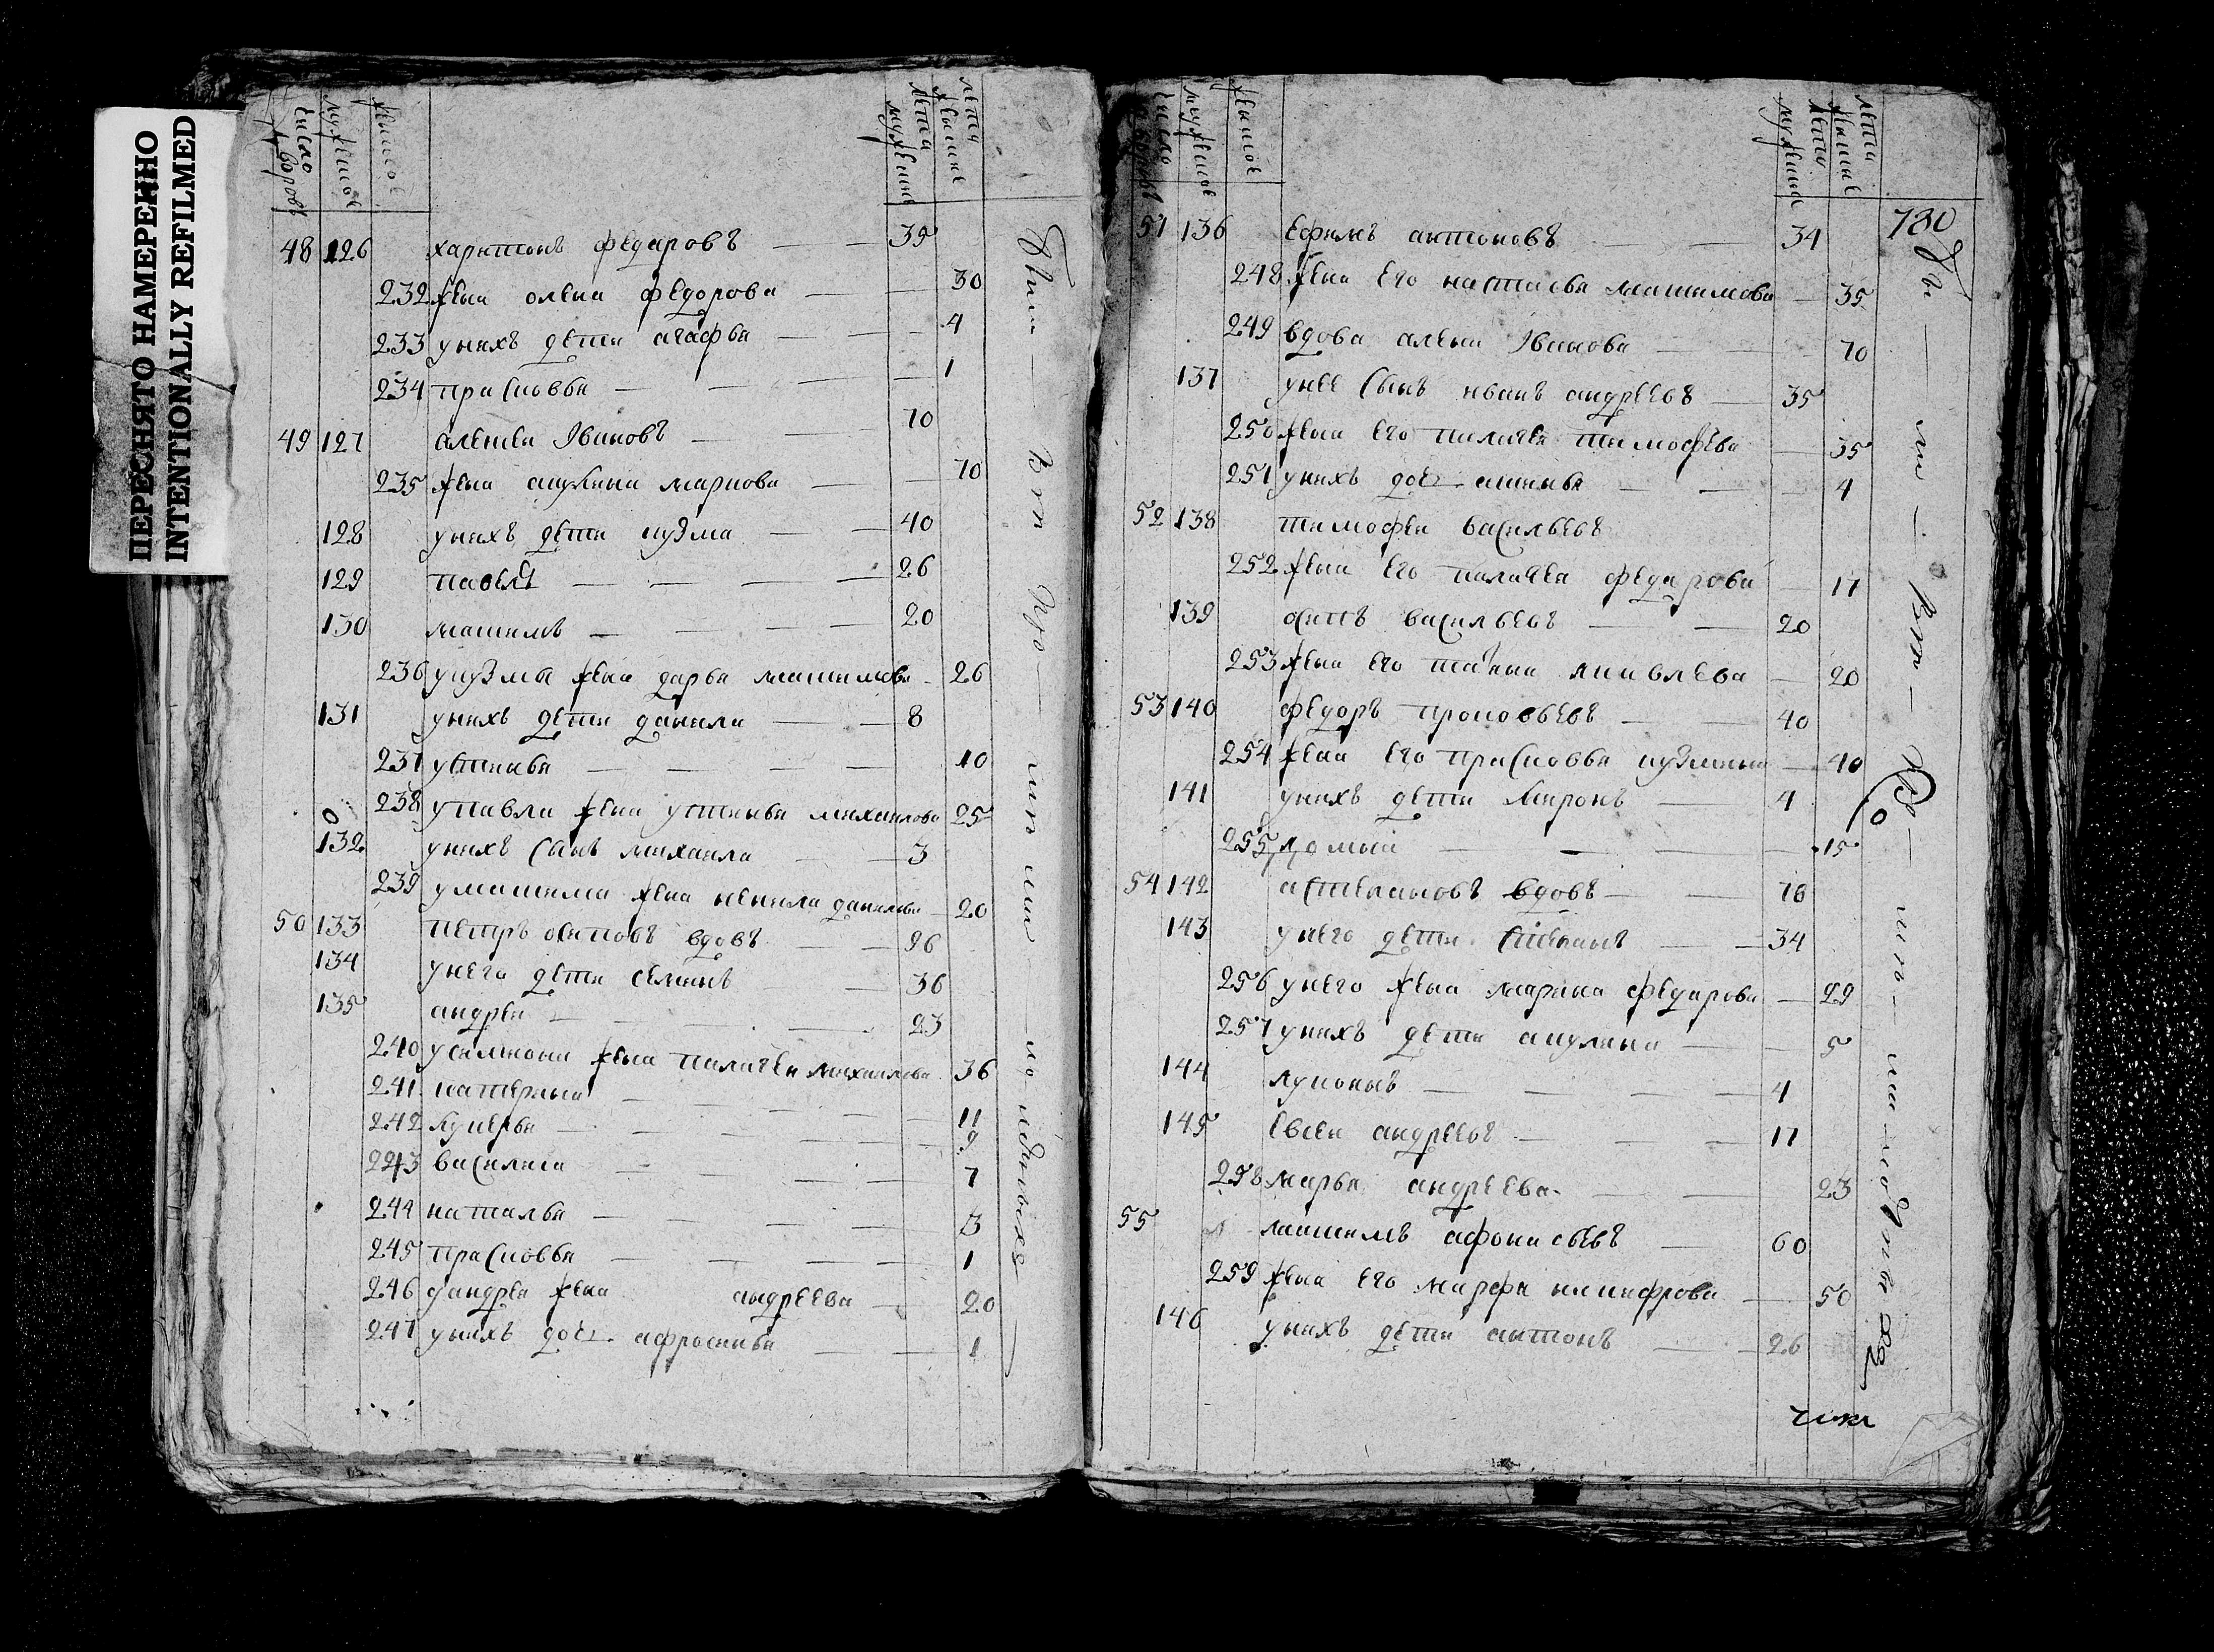 ПЕРЕСНЯТО НАМЕРЕННО
INTENTIONALLY REFILMED
число дворовъ
мужеское
женское
лета мужеска
лета женские
48 126 харитонъ федаровъ 35
232 жена олена федорова 30
233 унихъ дети агафья 4
234 прасковья 1
49 127 алексеи Iвановъ 70
235 жена акулина маркова 70
128 унихъ дети кузма 40
129 павелъ 26
130 максимъ 20
236 укузмы жена дарья максимова 26
131 унихъ дети данила 8
237 устинья 10
238 упавла жена устинья михаилова 25
0
132 унихъ сынъ михаила 3
239 умаксима жена ненила данилова 20
50 133 петръ осиповъ вдовъ 96
134 унего дети семионъ 36
135 андреи 23
240 усемиона жена палагея михаилова 36
241 катерина 11
242 лукерья 9
243 василиса 7
244 наталья 3
245 прасковья 1
246 уандрея жена андреева 20
247 унихъ доч афросинья 1
число дворовъ
мужеское
женское
лета мужеска
лета женские
780
51 136 ефимъ антоновъ 34
248 жена его настасья максимова 35
249 вдова алена Iванова 70
137 унее сынъ иванъ андреевъ 35
250 жена его палагея тимофеева 35
251 унихъ доч аксинья 4
52 138 тимофеи васильевъ
252 жена его палагея федарова 17
139 осипъ васильевъ 20
253 жена его татиана 20
53 140 федоръ прокофьевъ 40
254 жена его прасковья кузмина 40
141 унихъ дети миронъ 4
255 домна 15
54 142 астепановъ вдовъ 70
143 унего дети степанъ 34
256 унего жена марина федарова 29
257 унихъ дети акулина 5
144 лукьянъ 4
145 евсеи андреевъ 17
258 марья андреева 23
55 максимъ афонасьевъ 60
259 жена его марфа никифрова 50
146 унихъ дети антонъ 26